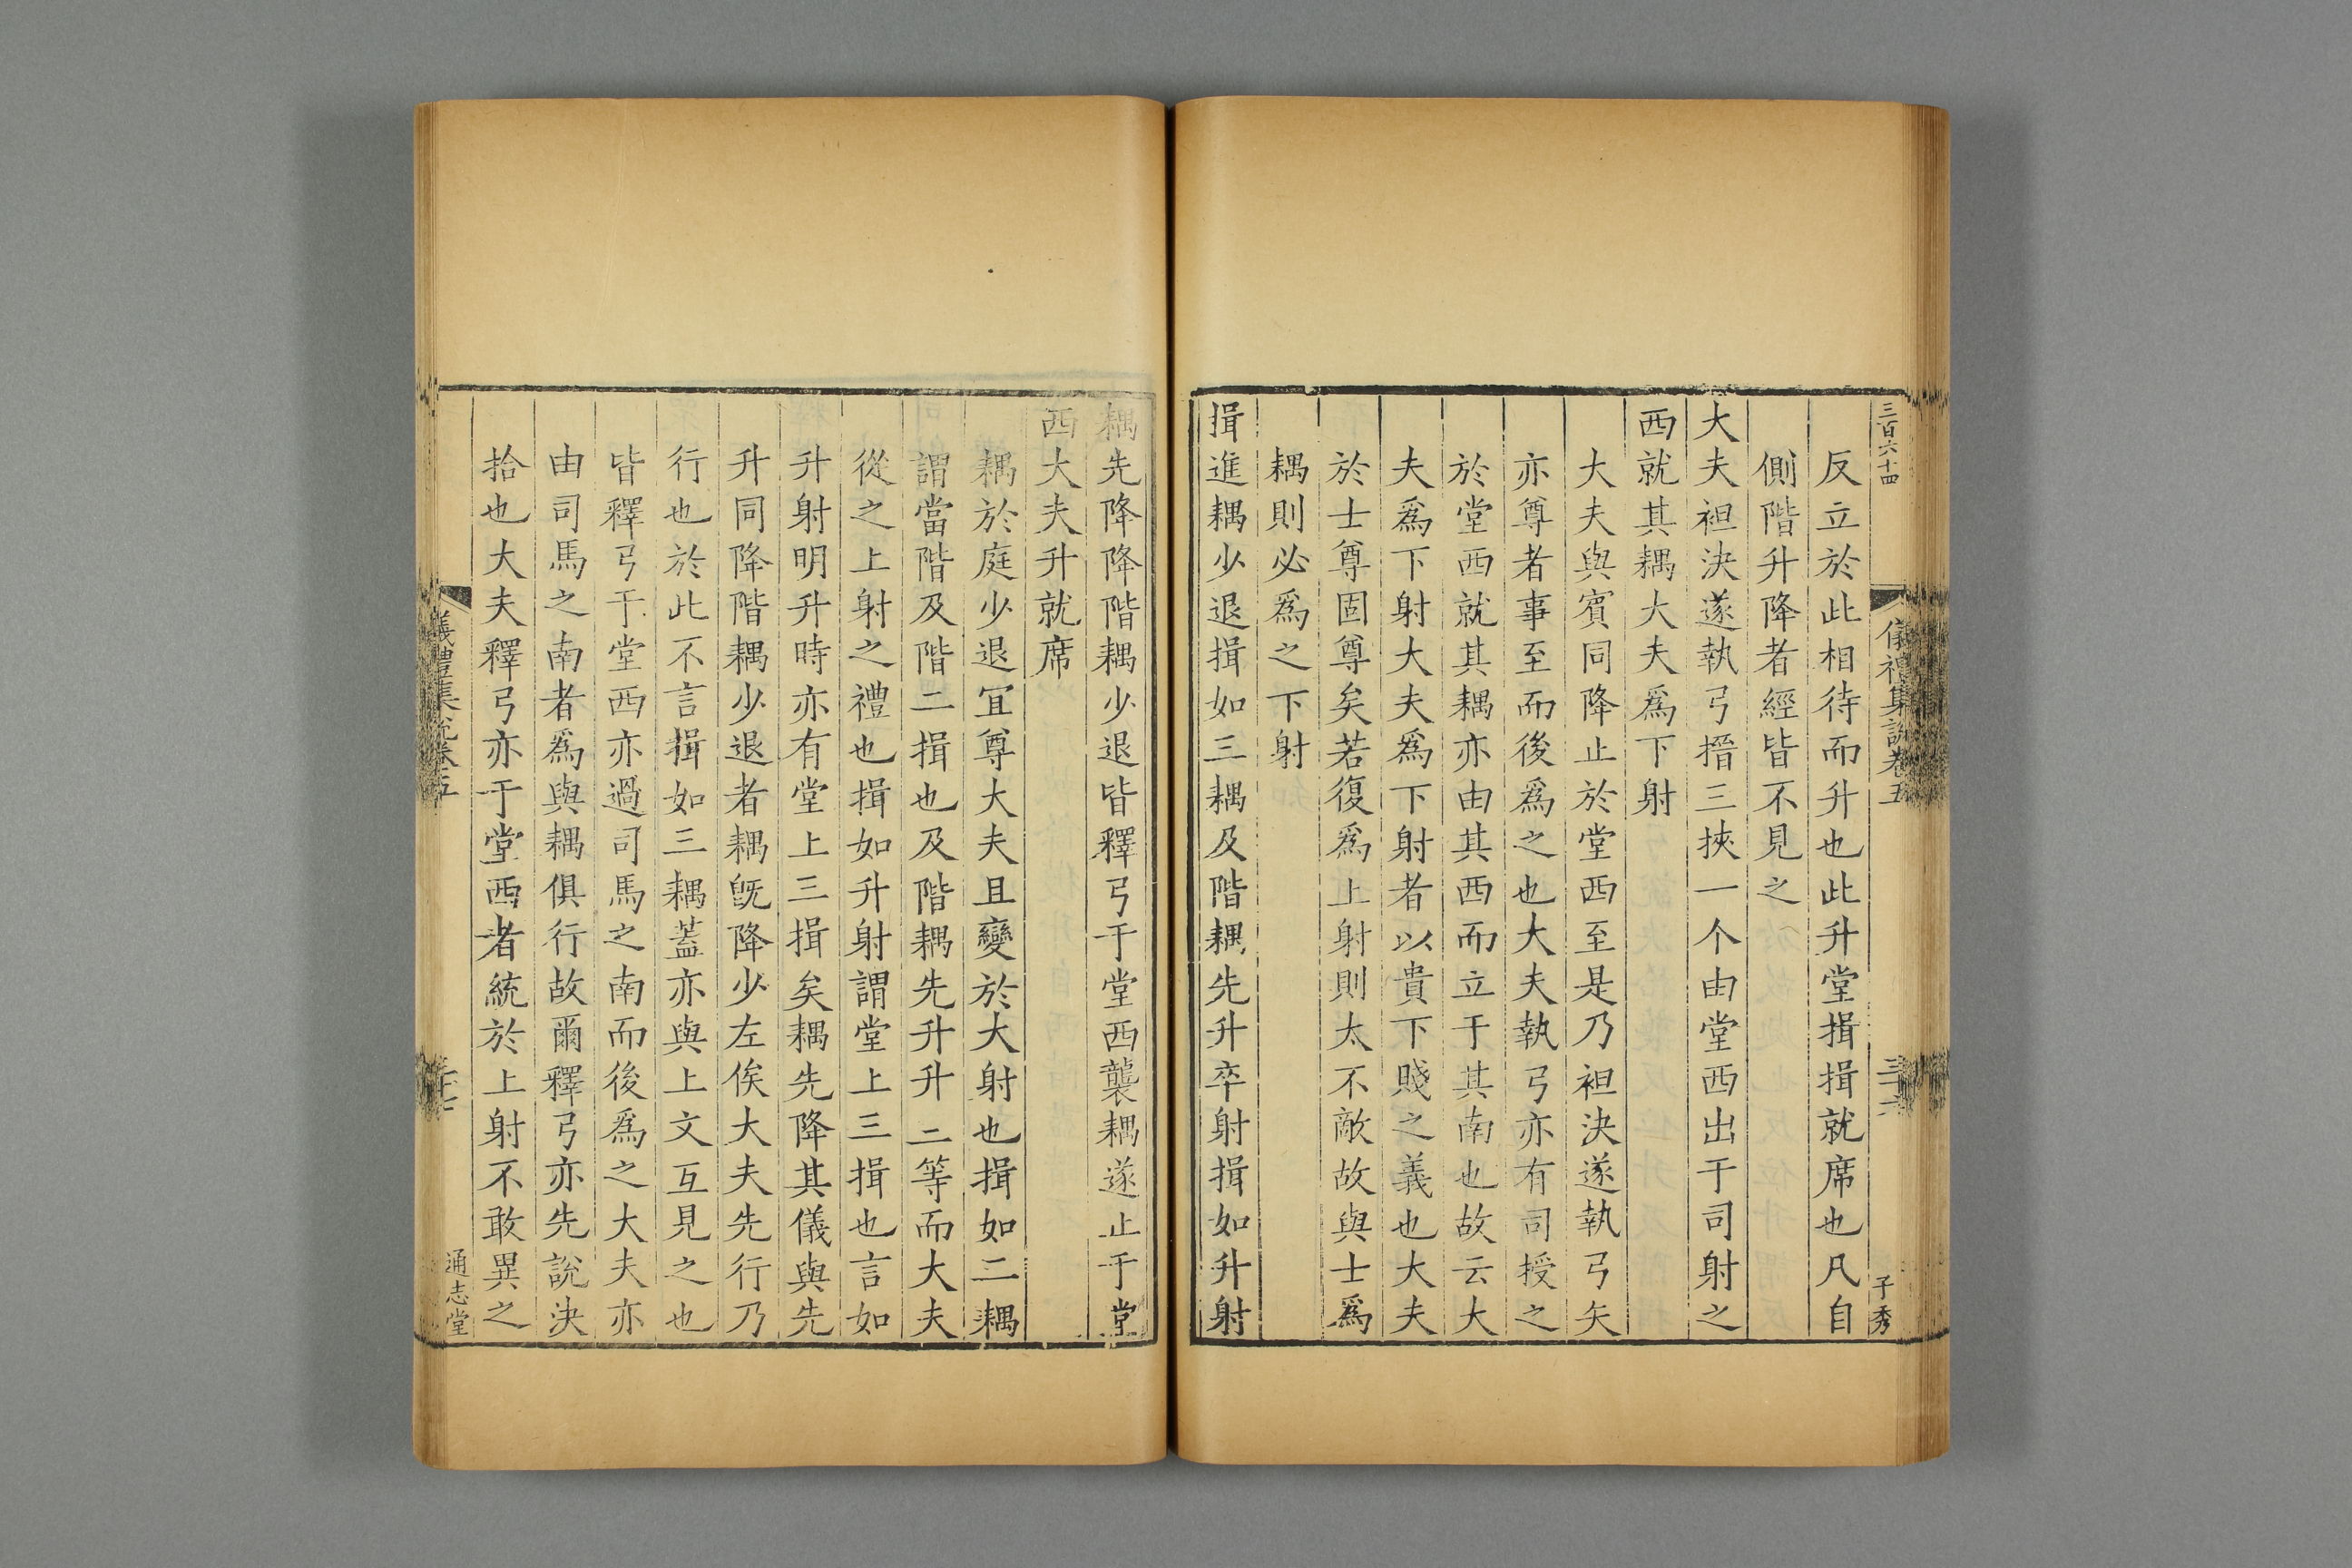 三百六十四
儀禮集說卷五
子秀
反立於此相待而升也此升堂揖揖就席也凡自
側階升降者經皆不見之
大夫袒決遂執弓搢三挾一个由堂西出于司射之
西就其耦大夫爲下射
大夫與賓同降止於堂西至是乃袒決遂執弓矢
亦尊者事至而後爲之也大夫執弓亦有司授之
於堂西就其耦亦由其西而立于其南也故云大
夫爲下射大夫爲下射者以貴下賤之義也大夫
於士尊固尊矣若復爲上射則太不敵故與士爲
耦則必爲之下射
揖進耦少退揖如三耦及階耦先升卒射揖如升射
耦先降降階耦少退皆釋弓于堂西襲耦遂止于堂
西大夫升就席
耦於庭少退宜尊大夫且變於大射也揖如三耦
謂當階及階二揖也及階耦先升升二等而大夫
從之上射之禮也揖如升射謂堂上三揖也言如
升射明升時亦有堂上三揖矣耦先降其儀與先
升同降階耦少退者耦旣降少左俟大夫先行乃
行也於此不言揖如三耦蓋亦與上文互見之也
皆釋弓于堂西亦過司馬之南而後爲之大夫亦
由司馬之南者爲與耦俱行故爾釋弓亦先說決
拾也大夫釋弓亦于堂西者統於上射不敢異之
儀禮集說卷五
通志堂